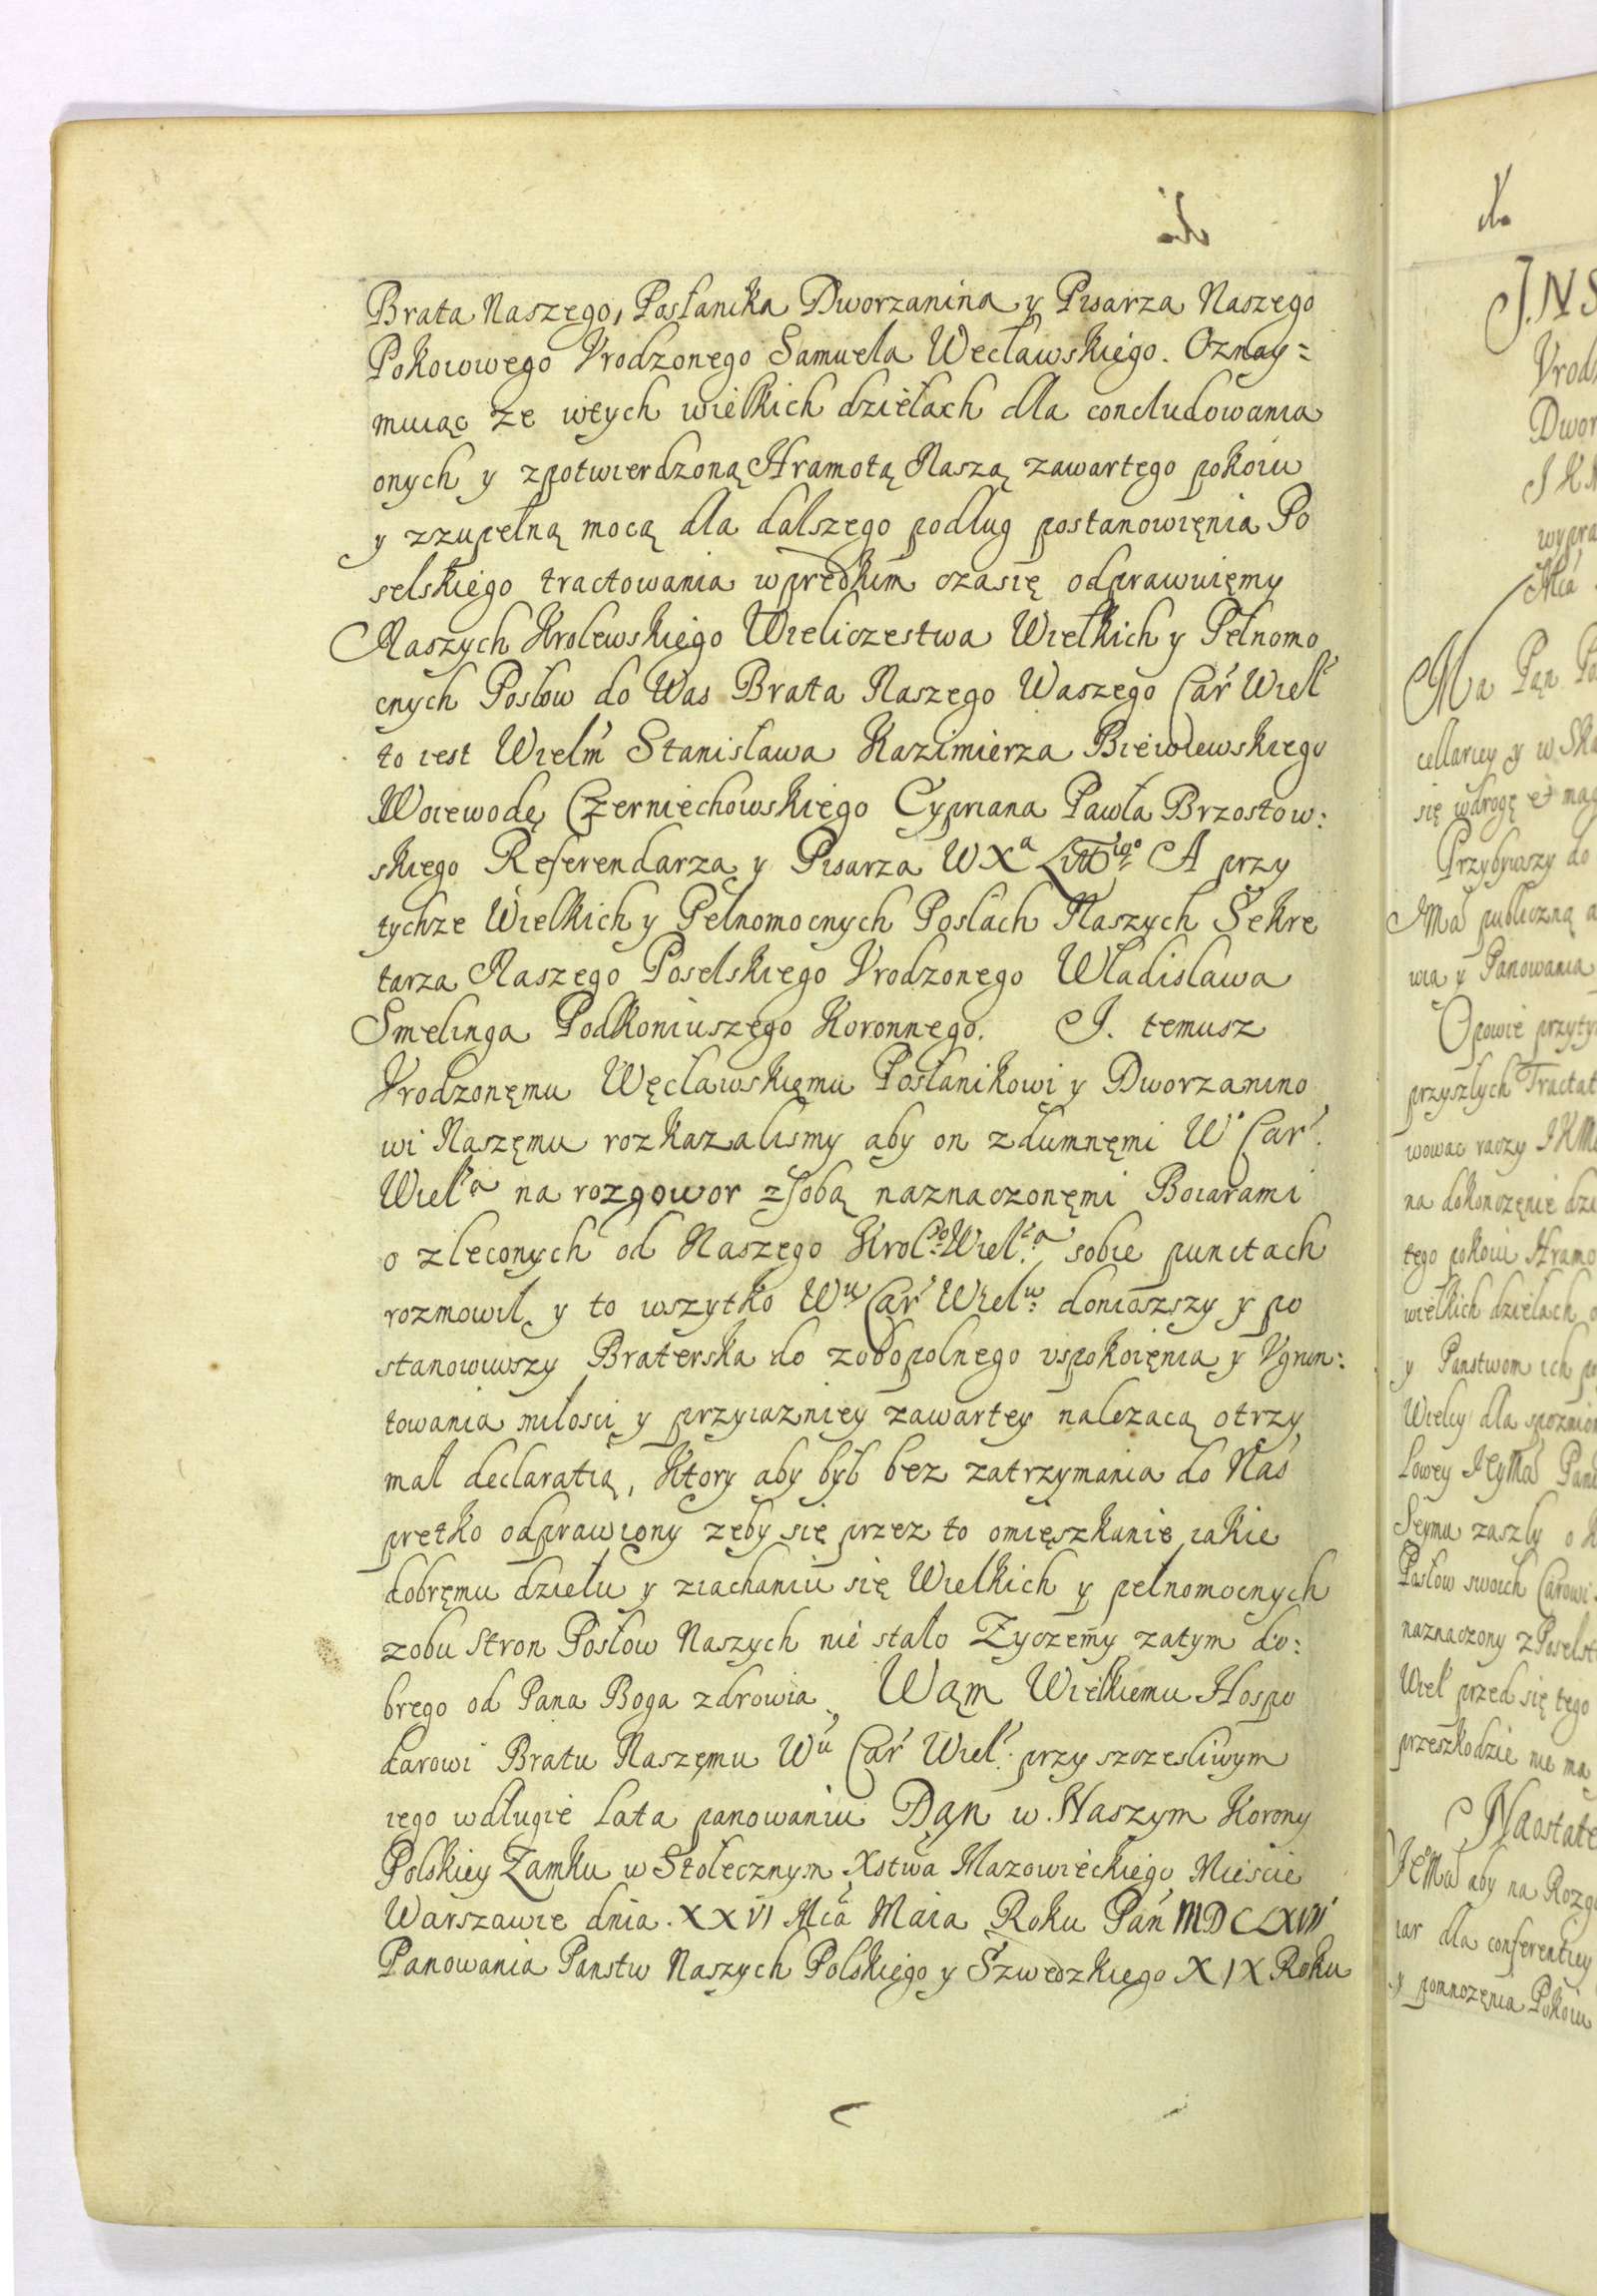 Brata Naszego, Posłanika Dworzanina y Pisarza Naszego
Pokoiowego Vrodzonego Samuela Wecławskiego. Oznay=
muiąc ze wtych wielkich dziełach dla concludowania
onych y zpotwierdzoną Hramotą Naszą zawartego pokoiu
y zzupełną mocą dla dalszego podług postanowięnia Po
selskiego tractowania wprędkim czasię odprawuięmy
Naszych Krolewskiego Wieliczestwa Wielkich y Pełnomo
cnych Posłow do Was Brata Naszego Waszego Car Wiel
to iest Wielm Stanisława Kazimierza Bieniewskiego
Woiewodę Czerniechowskiego Cypriana Pawła Brzostow:
skiego Referendarza y Pisarza W X^a Litt^go A przy
tychze Wielkich y Pełnomocnych Posłach Naszych Sekre
tarza Naszego Poselskiego Vrodzonego Władisława
Smelinga Podkoniuszego Koronnego. I. temusz
Vrodzonęmu Węcławskięmu Posłanikowi y Dworzanino
wi Naszęmu rozkazalismy aby on zdumnęmi W° Car.
Wiel^a na rozgowor zsobą naznaczonęmi Boiarami
o zleconych od Naszego Krol^o Wiel^a sobie punctach
rozmowił y to wszytko W^u Car Wiel^u doniozszy y po
stanowiwszy Braterska do zobopolnego vspokoięnia y Vgrun:
towania miłosci y przyiazniey zawartey nalezacą otrzy
mał declaratią, Ktory aby był bez zatrzymania do Nas
prętko odprawiony zeby się przez to omięszkanie iakie
dobręmu dziełu y ziachaniu się Wielkich y pełnomocnych
zobu Stron Posłow Naszych nie stało Zyczemy zatym do:
brego od Pana Boga zdrowia, Wąm Wielkiemu Hospo
darowi Bratu Naszęmu W^u Car Wiel. przy szczesliwym
iego wdługie lata panowaniu Dąn w Naszym Korony
Polskiey Zamku w Stołecznym Xstwa Mazowieckiego Miescie
Warszawie dnia XXVI Mca Maia Roku Pan MDCLXVII
Panowania Panstw Naszych Polskiego y Szwedzkiego XIX Roku
INS
Vrod
Dwor
I K
wypra
Mci
Ma Pąn Po
cellariey y w Ska
się wdrogę et mag
Przybywszy do
publiczną a
wia y Panowania
Opowie przyty
przyszłych Tractat
wowac raczy IKM
na dokonczęnie dzi
tego pokoiu Hramo
wielkich dziełach
y Panstwom ich po
Wielcy dla
łowey Pana
Seymu zaszły o
Posłow swoich Carowi
naznaczony zPoselst
Wiel przed się tego
przeszkodzie nie ma
Naostate
aby na Rozgo
iar dla conferentiey
y pomnozęnia Pokoiu